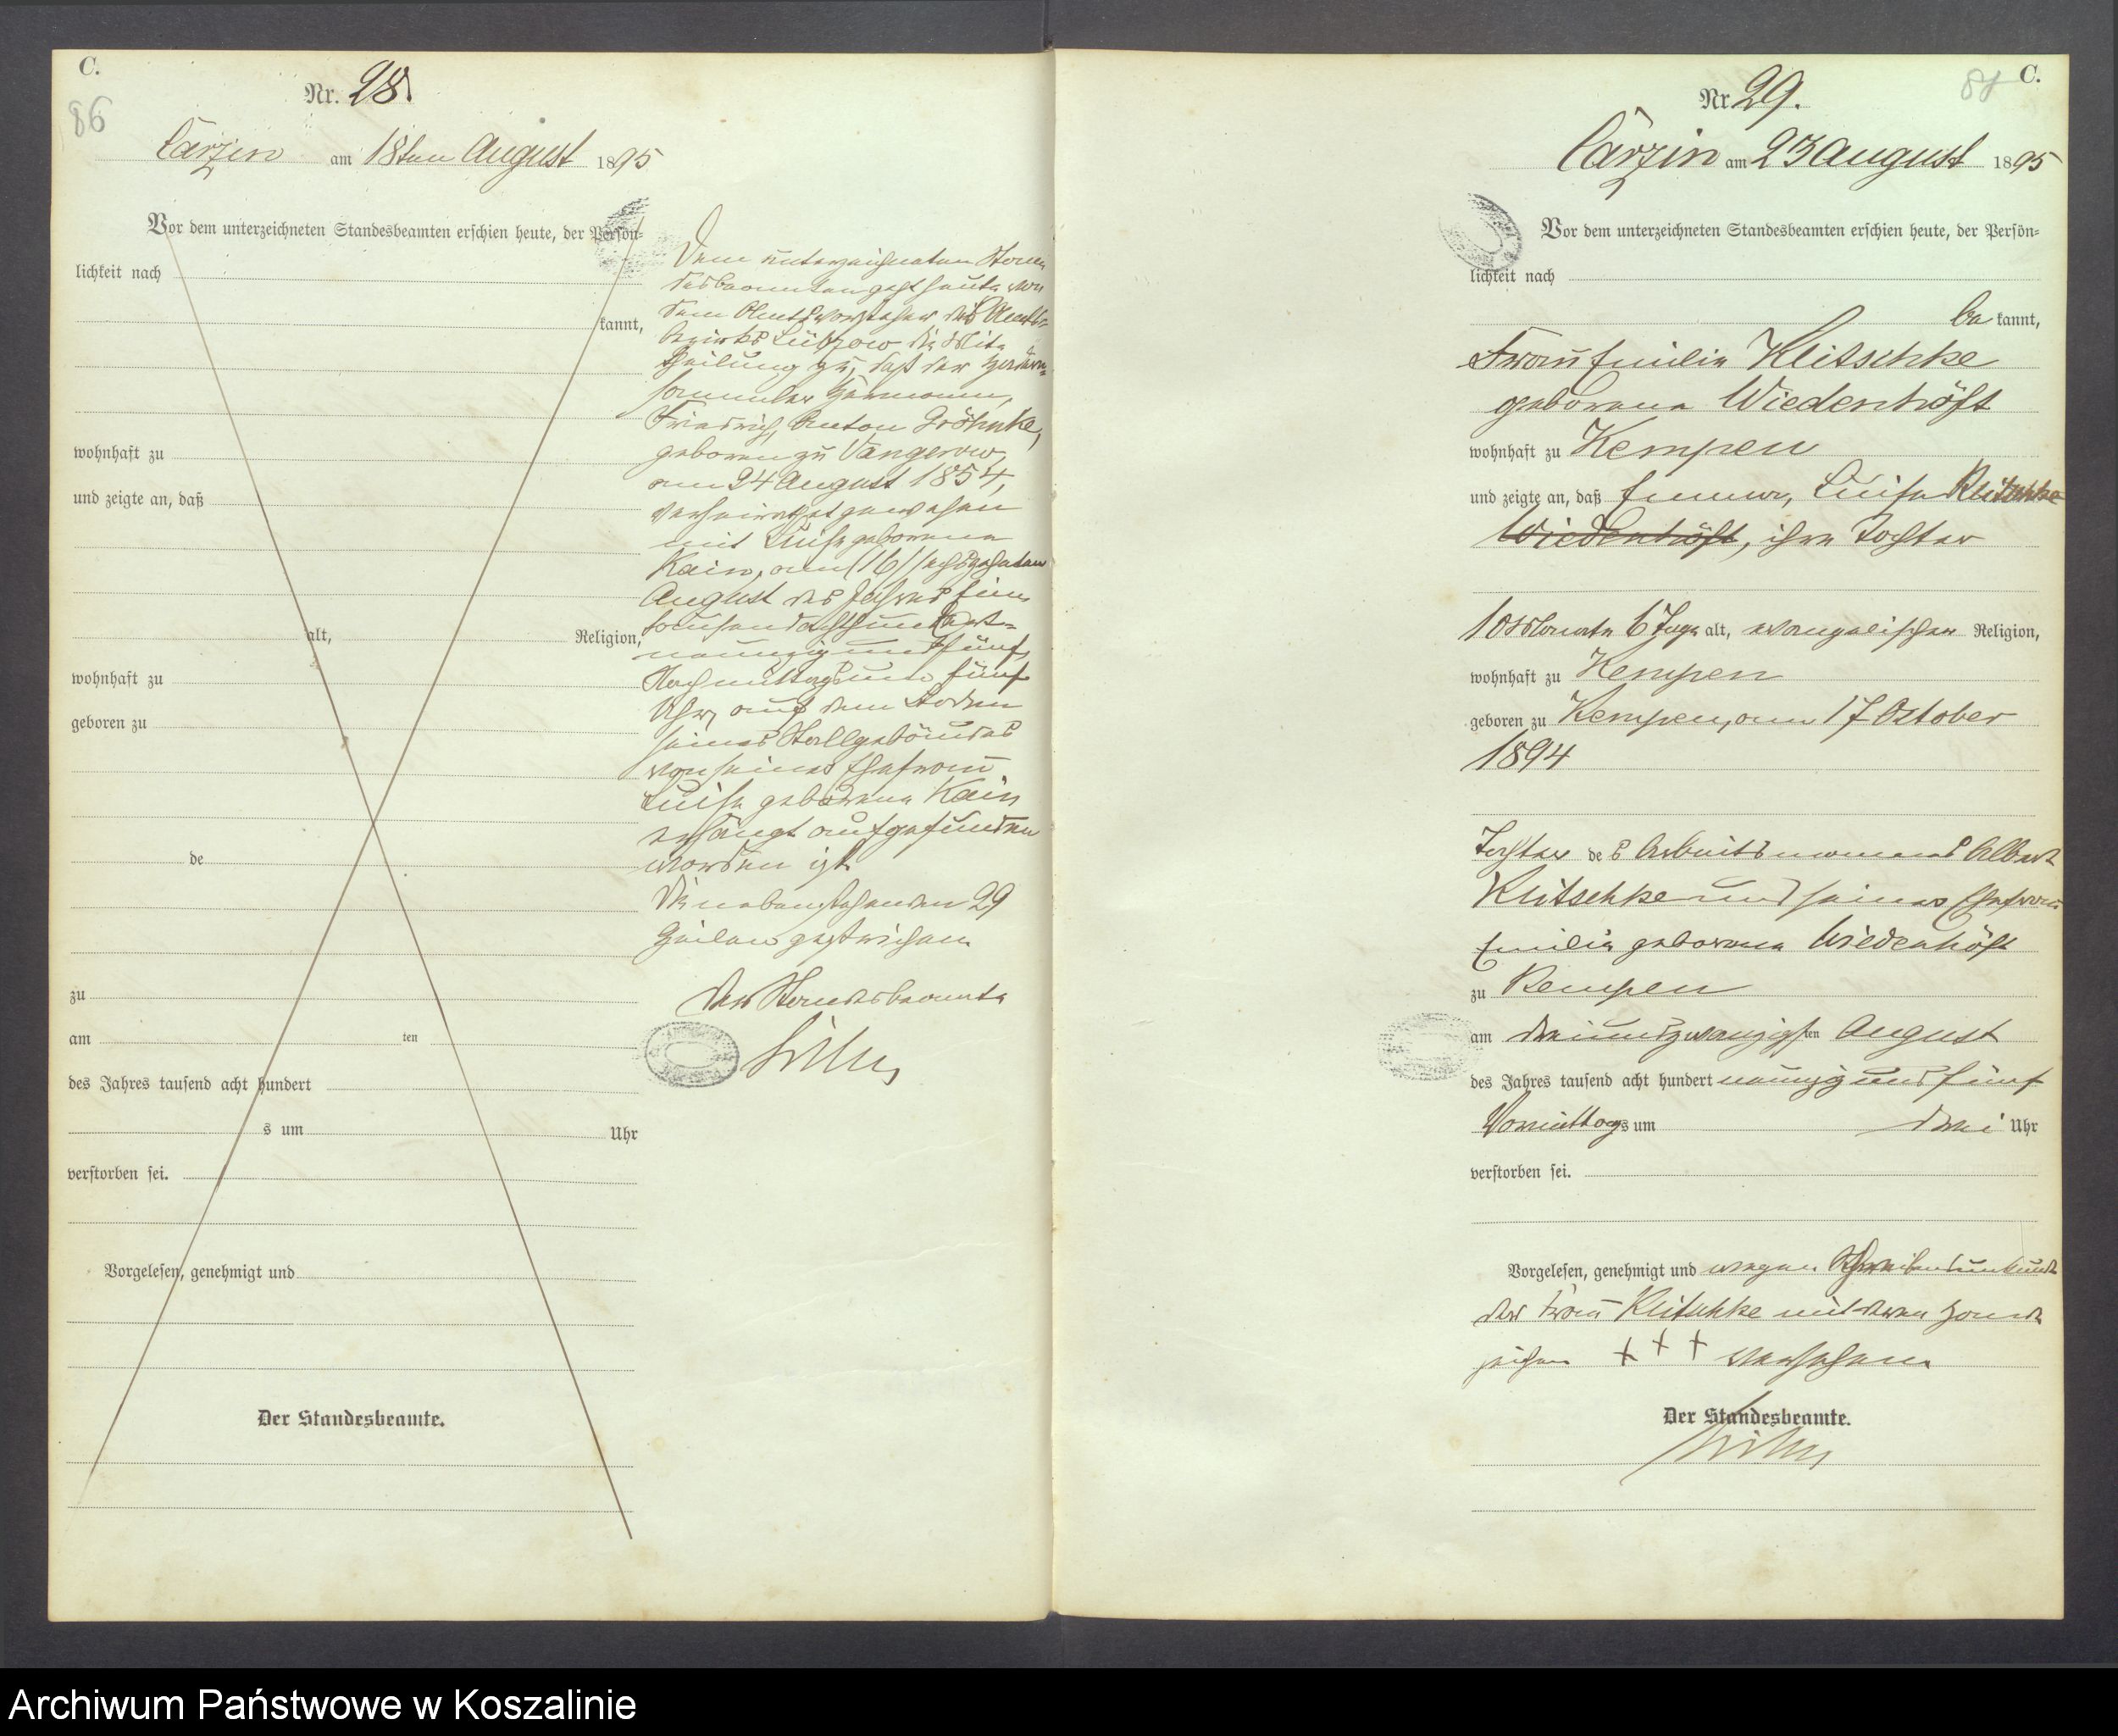 C.
86
Nr. 28.
Carzin am 18ten August 1895
Vor dem unterzeichneten Standesbeamten erschien heute, der Persön-
lichkeit nach
kannt,
wohnhaft zu
und zeigte an, daß
alt, Religion,
wohnhaft zu
geboren zu
de
zu
am ten
des Jahres tausend acht hundert
s um Uhr
verstorben sei.
Vorgelesen, genehmigt und
Der Standesbeamte.
Dem unterzeichneten Stan
desbeamten geht heute von
dem Amtsvorsteher des Amts-
bezirks Lübzow die Mit
theilung zu, daß der
sammler Hermann,
Friedrich, Anton Gröhnke,
geboren zu Vangerow,
am 24 August 1854,
verheirathet gewesen
mit Luise geborene
Kain, am (16) sechszehnten
August des Jahres Ein
tausendachthundert-
neunzig und fünf,
Nachmittags um fünf
Uhr, auf dem Boden
seines Stallgebäudes
von seiner Ehefrau
Luise geborene Kain
erhängt aufgefunden
worden ist.
Die nebenstehenden 29
Zeilen gestrichen.
Der Standesbeamte
C.
Nr 29.
Carzin am 23 August 1895
Vor dem unterzeichneten Standesbeamten erschien heute, der Persön-
lichkeit nach
be kannt,
Frau Emilie Klitschke
geborene Wiedenhöft
wohnhaft zu Kempen
und zeigte an, daß Emma, Luise Klitschke
Wiedenhöft, ihre Tochter
10 Monate 6 Tage alt, evangelischer Religion,
wohnhaft zu Kempen
geboren zu Kempen, am 17 October
1894
Tochter des Arbeitsmannes Albert
Klitschke und seiner Ehefrau
Emilie geborene Wiedenhöft
zu Kempen
am dreiundzwanzigsten August
des Jahres tausend acht hundert neunzig und fünf
Vormittags um drei Uhr
verstorben sei.
Vorgelesen, genehmigt und wegen Schreibensunkunde
der Frau Klitschke mit deren Hand
zeichen + + + versehen.
Der Standesbeamte.
Archiwum Państwowe w Koszalinie